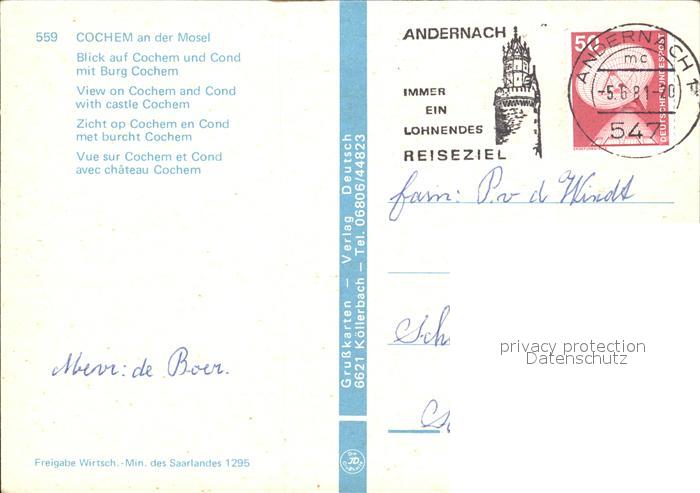 559 COCHEM an der Mosel
Blick auf Cochem und Cond
mit Burg Cochem
View on Cochem and Cond
with castle Cochem
Zicht op Cochem en Cond
met burcht Cochem
Vue sur Cochem et Cond
avec château Cochem
Mevr: de Boer.
Freigabe Wirtsch.-Min. des Saarlandes 1295
Grußkarten – Verlag Deutsch
6621 Köllerbach – Tel. 06806/44823
ANDERNACH
IMMER
EIN
LOHNENDES
REISEZIEL
50
DEUTSCHE BUNDESPOST
ANDERNACH
mc
-5.6.81-20
547
fam: P. v d Windt
Sch
privacy protection
Datenschutz